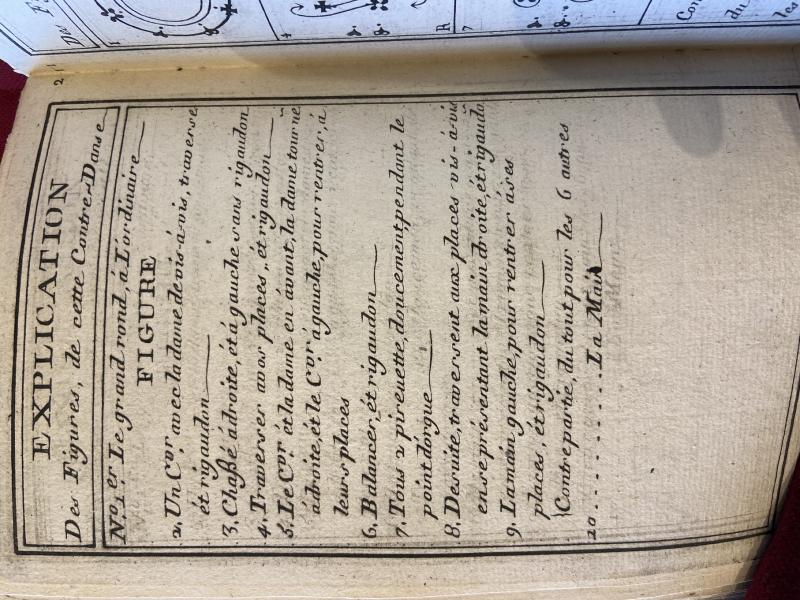 EXPLICATION
Des Figures, de cette Contre-Danse
No. 1er Le grand rond, á L'ordinaire
FIGURE
2. Un Cor avec la dame de vis-á-vis, traverse
ét rigaudon
3. Chaßé ádroite, ét á gauche sans rigaudon
4. Traverser á vos places, ét rigaudon
5. Le Cor ét la dame en ávant, la dame tourne
ádroite, ét le Cor ágauche, pour rentrer, á
leurs places
6. Balancer, ét rigaudon
7. Tous 2 pireuette, doucement, pendant le
point d'orgue
8. De suite, traversent aux places vis-á-vis
en se présentant la main droite, ét rigaudon
9. La main gauche, pour rentrer á ses
places, ét rigaudon
Contre partie, du tout pour les 6 autres
10 . . . . . . . . . . . La Main
2
1
4
R
7
Con
du
les